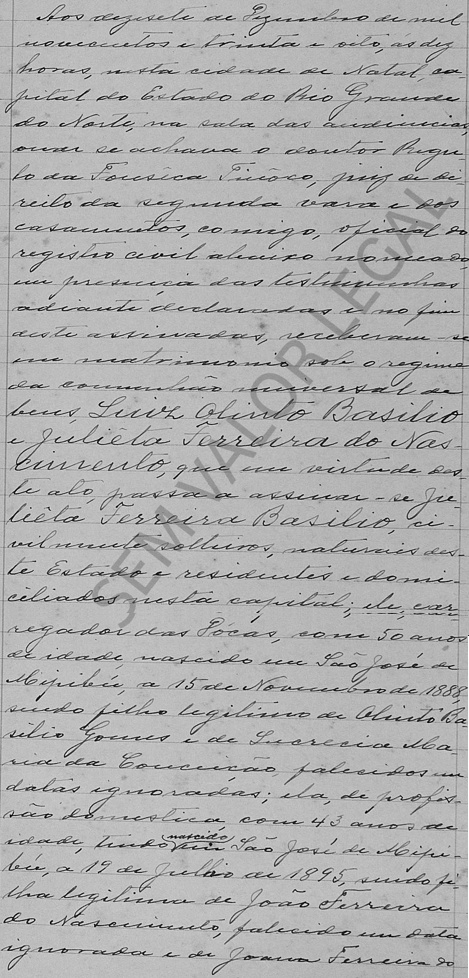 Aos dezisete de Dezembro de mil
novecentos e trinta e oito, ás dez
horas, nesta cidade de Natal, ca
pital do Estado do Rio Grande
do Norte, na sala das audiencias,
onde se achava o doutor Regu
lo da Fonseca Tinôco, juiz de di
reito da segunda vara e dos
casamentos, comigo, oficial do
registro civil abaixo nomeado,
em presença das testimunhas
adiante declaradas e no fim
deste assinadas, receberam-se
em matrimonio sob o regime
da comunhão universal de
bens, Luiz Olinto Basilio
e Juliêta Ferreira do Nas-
cimento, que em virtude des-
te ato, passa a assinar-se Ju-
liêta Ferreira Basilio, ci-
vilmente solteiros, naturais des-
te Estado e residentes e domi-
ciliados nesta capital; ele, car-
regador das Pócas, com 50 anos
de idade, nascido em São José de
Mipibú, a 15 de Novembro de 1888,
sendo filho legitimo de Olinto Ba-
silio Gomes e de Lucrecia Ma-
ria da Conceição, falecidos em
datas ignoradas; ela, de profis-
são domestica, com 43 anos de
idade, tendo nascido em São José de Mipi-
bú, a 19 de Julho de 1895, sendo fi-
lha legitima de João Ferreira
do Nascimento, falecido em data
ignorada e de Joana Ferreira do
SEM VALOR LEGAL